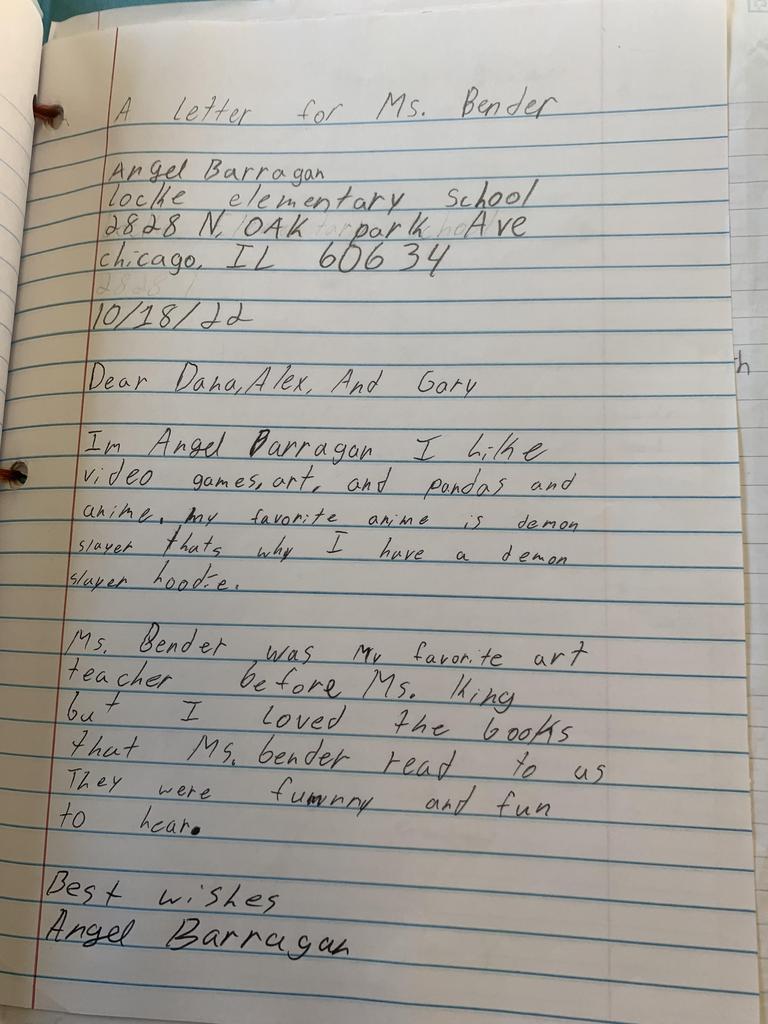 A letter for Ms. Bender
Angel Barragan
locke elementary school
2828 N. OAK park Ave
chicago, IL 60634
10/18/22
Dear Dana, Alex, And Gary
Im Angel Barragan I Like
video games, art, and pandas and
anime. my favorite anime is demon
slayer thats why I have a demon
slayer hoodie.
Ms. Bender was my favorite art
teacher before Ms. King
but I loved the books
that Ms. bender read to us
They were fumnny and fun
to hear.
Best wishes
Angel Barragan
h